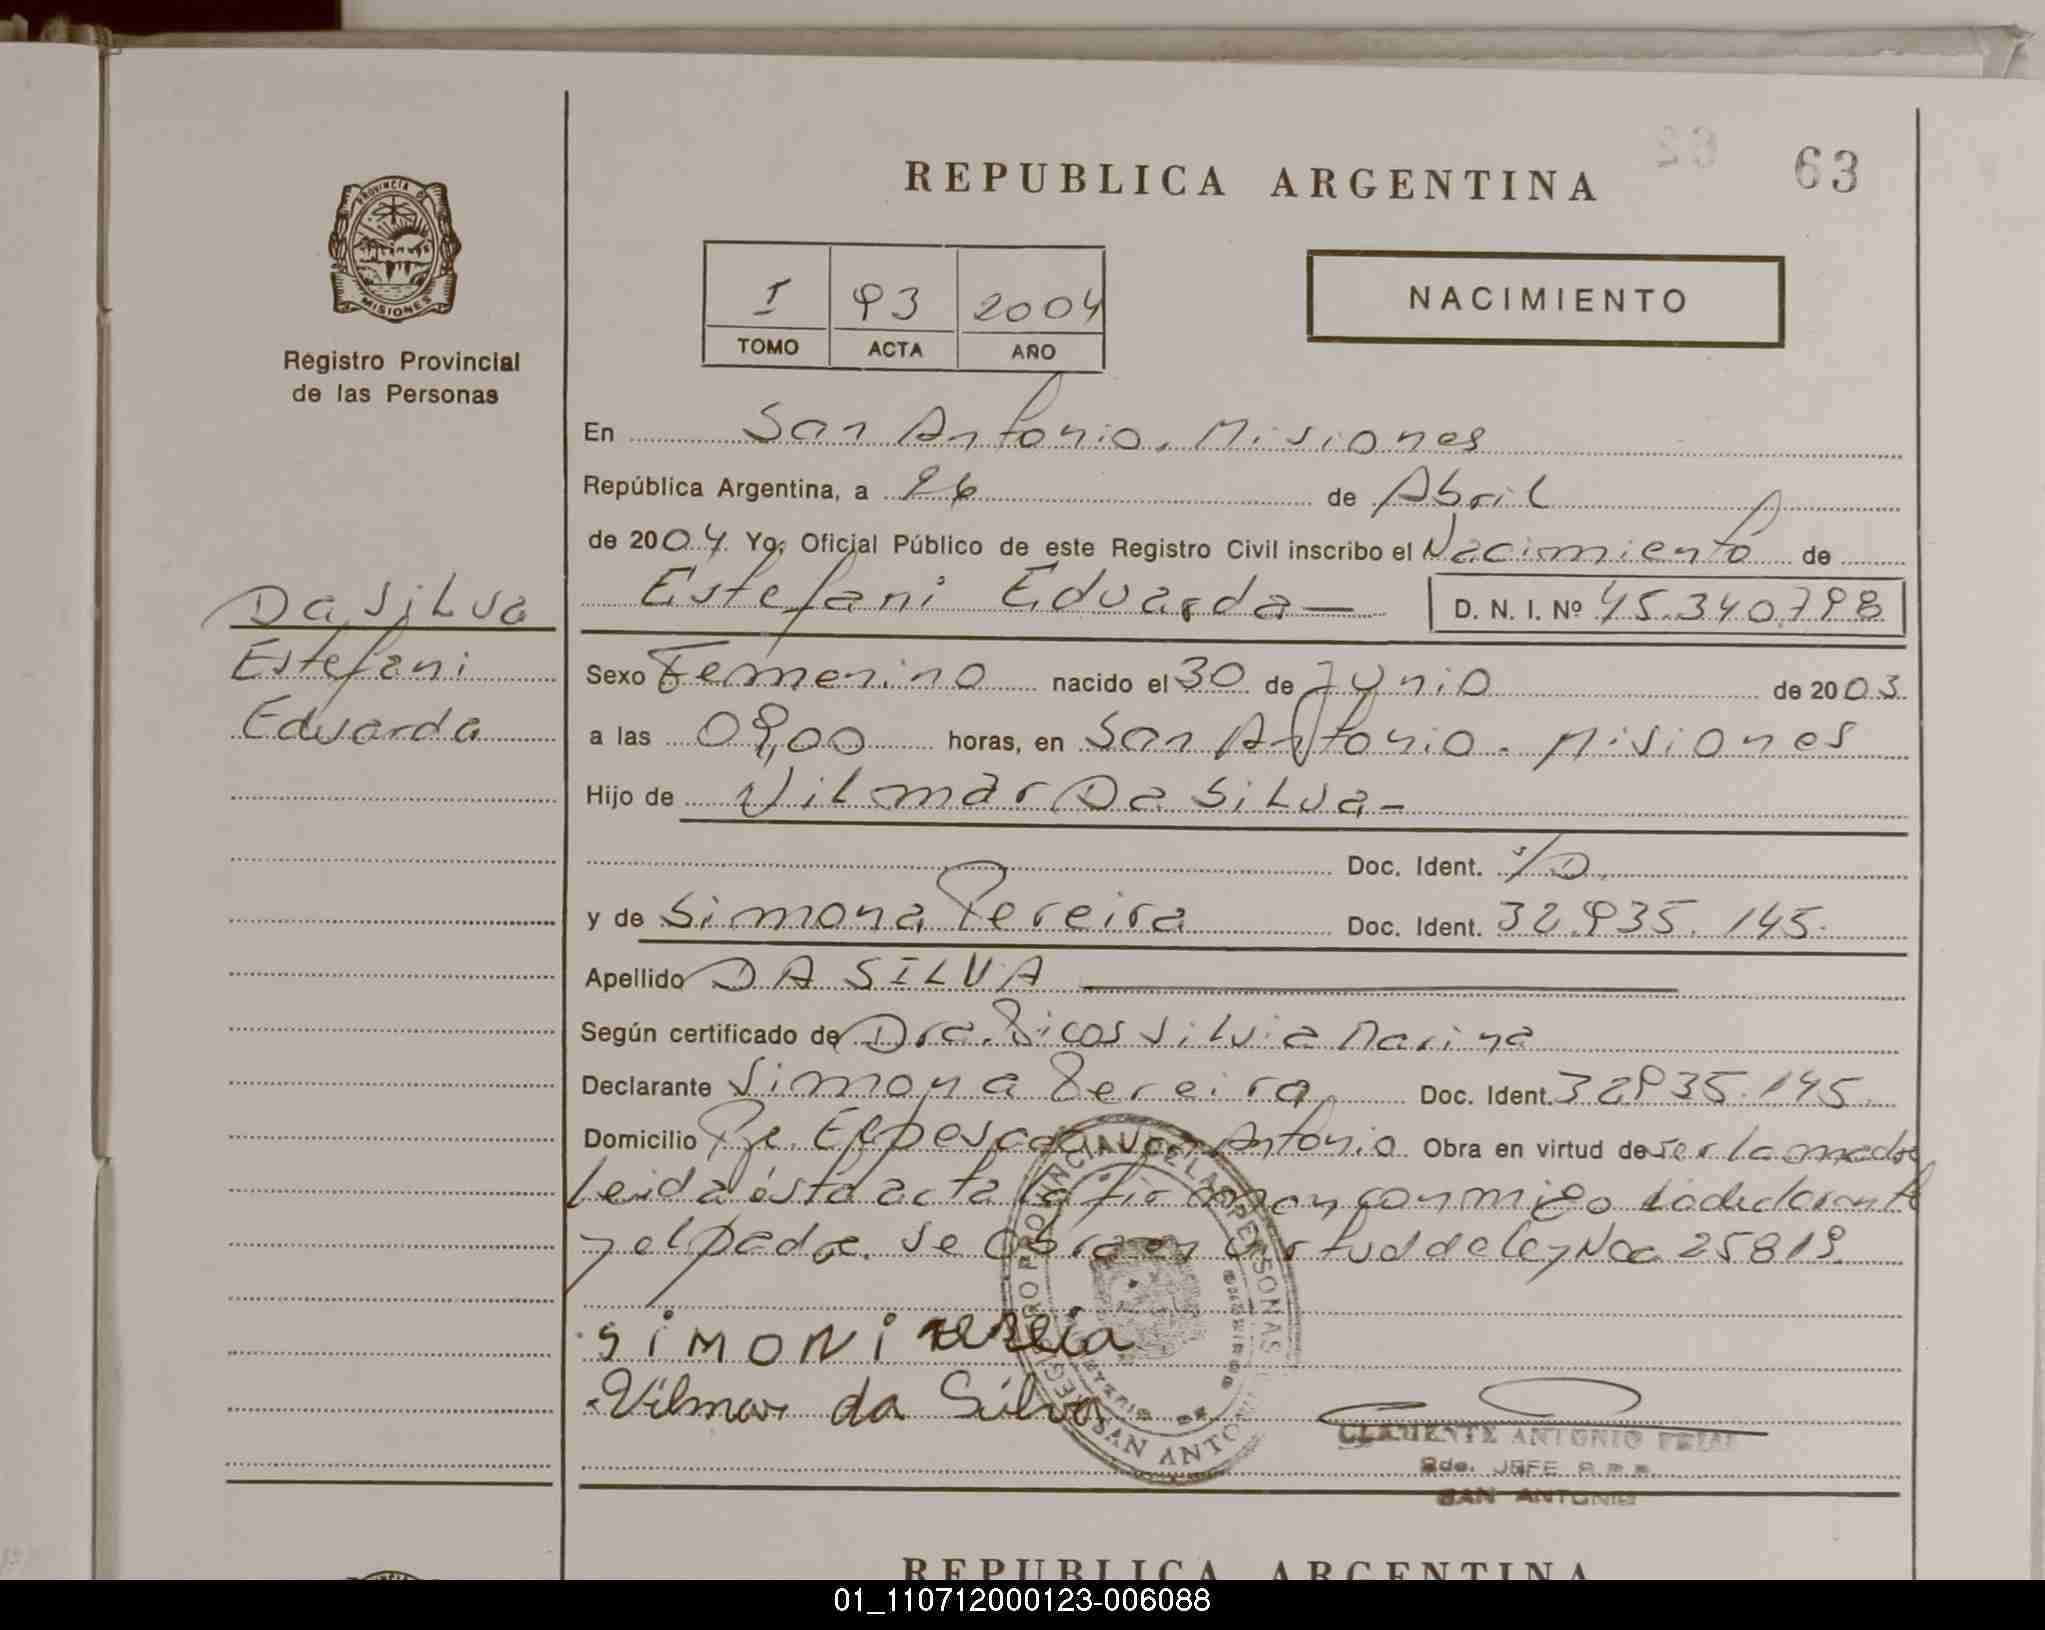 REPUBLICA ARGENTINA
63
PROVINCIA DE
MISIONES
Registro Provincial
de las Personas
I 93 2004
TOMO ACTA AÑO
NACIMIENTO
En San Antonio, Misiones
República Argentina, a 26 de Abril
de 2004 Yo, Oficial Público de este Registro Civil inscribo el Nacimiento de
Estefani Eduarda — D. N. I. Nº 45.340.798
Da Silva
Estefani
Eduarda
Sexo Femenino nacido el 30 de Junio de 2003
a las 09,00 horas, en San Antonio. Misiones
Hijo de Vilmar Da Silva -
Doc. Ident. s/D.
y de Simona Pereira Doc. Ident. 32.935.145.
Apellido DA SILVA
Según certificado de Dra. Silvia Marina
Declarante Simona Pereira Doc. Ident. 32935.145
Domicilio Antonio Obra en virtud de ser la madre
Leida ésta acta la firman conmigo La declarante
y el padre. Se obra en virtud de Ley 25819
SiMONi
Vilmar da Silva
SAN ANTONIO
CLEMENTE ANTONIO
JEFE
SAN ANTONIO
REPUBLICA ARGENTINA
01_110712000123-006088